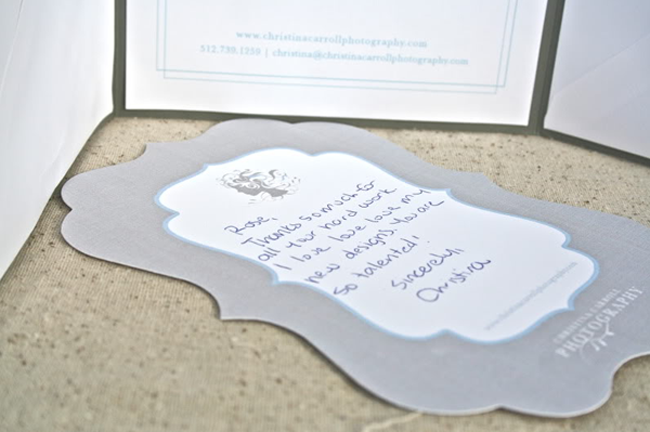 www.christinacarrollphotography.com
512.739.1259 | christina@christinacarrollphotography.com
Rose,
Thanks so much for
all your hard work
I love love love my
new designs. You are
so talented!
Sincerely,
Christina
www.christinacarrollphotography.com
CHRISTINA CARROLL
PHOTOGRAPHY